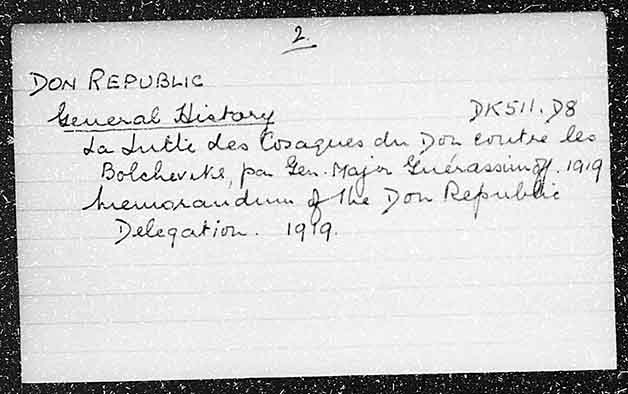 2.
DON REPUBLIC
General History DK511.D8
La Lutte des Cosaques du Don contre les
Bolcheviks, par Gen. Major Guérassimoff. 1919
Memorandum of the Don Republic
Delegation. 1919.